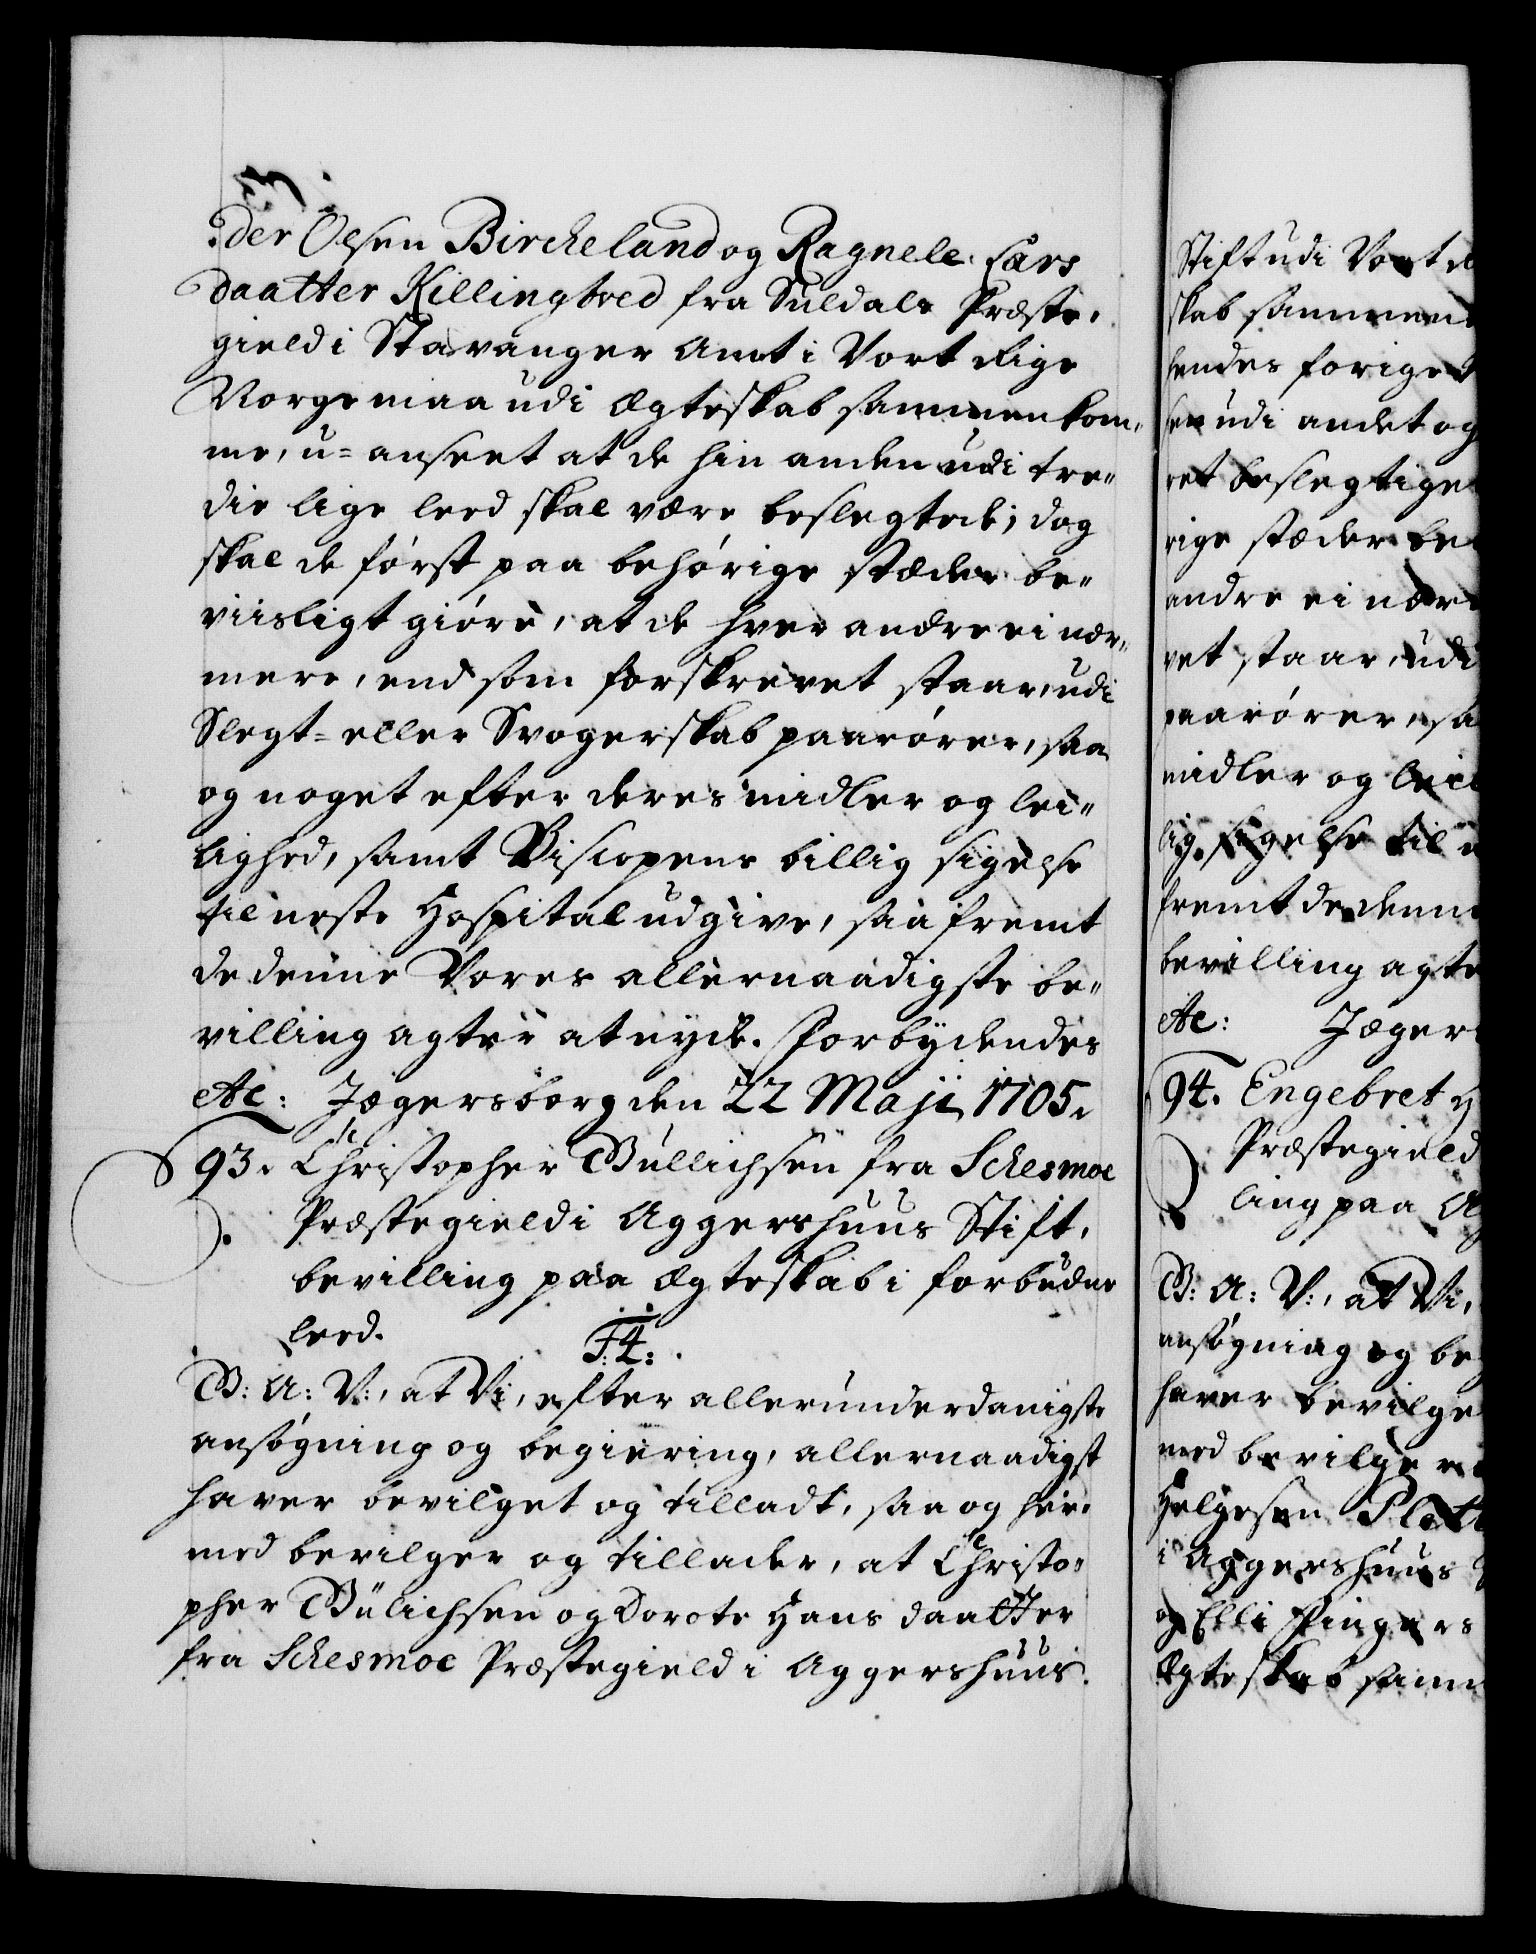 der Olsen Bircheland og Ragnele Lars
daatter Killingtved fra Suldals Præste,
gield i Stavanger Amt i Vort Rige
Norge maa udi Ægteskab sammenkom,
me, u=anseet at de hin anden udi tre„
die lige leed skal være beslegtede; dog
skal de først paa behørige stæder be„
viisligt giøre, at de hver andre ei nær„
mere, end som forskrevet staar, udi
Slegt= eller Svogerskab paarører, saa
og noget efter deres midler og lei„
lighed, samt Biscopens billig sigelse
til neste Hospital udgive, saafremt
de denne Vores allernaadigste be„
villing agter at nyde. Forbydendes
Ac: Jægersborg den 22 Maji 1705.
93. Christopher Büllichsen fra Schesmoe
Præstegield i Aggershuus Stift,
bevilling paa Ægteskab i forbudne
leed.
F: 4:
B: A: V:, at Vi, efter allerunderdanigste
ansøgning og begiering, allernaadigst
haver bevilget og tilladt, saa og her,
med bevilger og tillader, at Christo,
pher Bülichsen og Dorote Hans daatter
fra Schesmoe Præstegield i Aggershuus
Stift udi Vort
skab sammen
hendes forige
udi andet og
ret beslegtige
rige stæder be
andre ei nær
vet staar, udi
paarører, sa
midler og lei
lig sigelse til
fremt de denn
bevilling agte
Ac: Jæger
94. Engebret H
Præstegield
ling paa Æ
B: A: V:, at Vi,
ansøgning og be
haver bevilge
med bevilger
Helgesen Plett
i Aggershuus
og Elli Fingers
Ægteskab samm